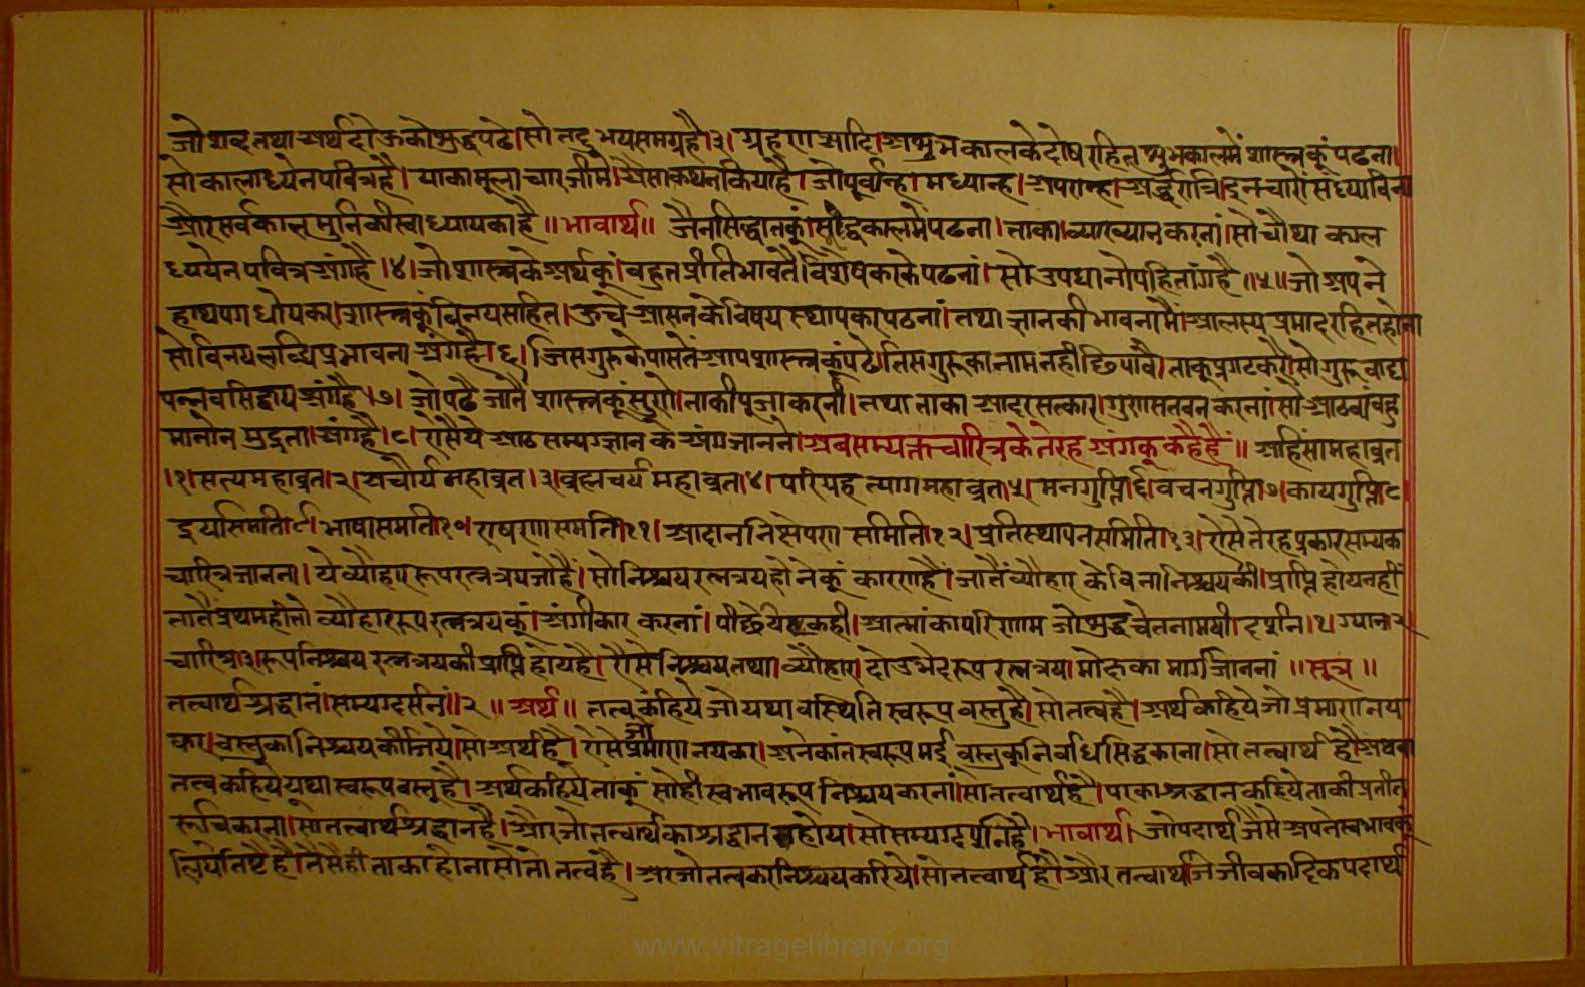 जो शब्द तथा अर्थ दोऊको शुद्ध पढे। सो तदुभयसमग्रहै।३। ग्रहण आदि। अशुभ कालके दोष रहित शुभकालमें शास्त्रकूं पढना।
सो कालाध्येन पवित्र है। याका मूलाचारजीमें। अैसा कथन किया है। जो पूर्वान्ह। मध्यान्ह। अपरान्ह। अर्द्धरात्रि। इन चारों संध्या विना
और सर्वकाल मुनिकी स्वाध्यायका है ॥ भावार्थ ॥ जैन सिद्धांतकूं। सुद्धकालमें पढना। ताका। व्याख्यान करनां। सो चौथा काल
ध्ययेन पवित्र अंग है।४। जो शास्त्रके अर्थकूं। बहुत प्रीतिभावतै। विशेषकाके पढनां। सो उपधानोपहितांग है ॥५॥ जो अपने
हाथ पग धोयकर। शास्त्रकूं विनय सहित। ऊचै आसनके विषय स्थापकर पठनां। तथा ज्ञानकी भावनामैं। आलस्य प्रमाद रहित होना
सो विनयलब्धि प्रभावना अंग है।६। जिस गुरुके पासतें आप शास्त्रकूं पढे। तिस गुरूका नाम नही छिपावै। ताकू प्रगट करै। सो गुरूवाद्य
पन्नवसिद्वाय अंग है।७। जो पढै जानै शास्त्रकूं सुणे। ताकी पूजा करनी। तथा ताका आदर सत्कार। गुण सतवन करनां। सो आठवां बहु
मानोन मुद्रता। अंग है।८। ऐसै ये आठ सम्यग्ज्ञान के अंग जानने। अब सम्यक्तचारित्रके तेरह अंगकू कहै हैं ॥ अहिंसा महाव्रत
।१। सत्य महाव्रत।२। अचौर्य महाव्रत।३। ब्रह्मचर्य महाव्रत।४। परिग्रह त्याग महाव्रत।५। मनगुप्ति।६। वचनगुप्ति।७। कायगुप्ति।८।
इर्यासमिति।९। भाषासमती।१०। एषणासमति।११। आदाननिक्षेपण समिति।१२। प्रतिस्थापनसमिति।१३। ऐसे तेरह प्रकार सम्यक
चारित्र जानना। ये व्यौहार रूप रत्नत्रय जो है। सो निश्चय रत्नत्रय होनेकूं कारण है। जातैं व्यौहार के विना निश्चयकी। प्राप्ति होय नहीं
तातै प्रथमही तो व्यौहार रूप रत्नत्रयकूं। अंगीकार करनां। पीछै येक ही। आत्मांका परिणाम जो शुद्ध चेतनामयी। दर्शन।१। ग्यान २
चारित्र।३। रूप निश्चय रत्नत्रयकी प्राप्ति होय है। ऐसे निश्चय तथा। व्यौहार। दोउ भेद रूप रत्नत्रय। मोक्षका मार्ग जाननां ॥ सूत्र ॥
तत्वार्थ श्रद्धानं। सम्यग्दर्सनं।२ ॥ अर्थ ॥ तत्व कहिये जो यथावस्थिति स्वरूप वस्तु है। सो तत्व है। अर्थ कहिये जो प्रमाण नय
कर। वस्तुका निश्चय कीजिये। सो अर्थ है। ऐसे जो प्रमाण नय कर। अनेकांत स्वरूप मई वस्तुकू निर्वाध सिद्ध काना। सो तत्वार्थ है। अथवा
तत्व कहिये यथा स्वरूप वस्तु है। अर्थ कहिये ताकूं सोही स्वभाव रूप निश्चय करनां। सो तत्वार्थ है। याका श्रद्धान कहिये ताकी प्रतीत
रूचि करना। सो तत्वार्थ श्रद्धान है। और जो तत्वार्थका श्रद्धान होय। सो सम्यग्दर्शन है। भावार्थ। जो पदार्थ जैसे अपने स्वभावकूं
लिये तिष्टै है। तैसै ही ताका होना सो तो तत्व है। अर जो तत्व कर निश्चय करिये। सो तत्वार्थ है। और तत्वार्थ जे जीवकादिक पदार्थ
www.vitragelibrary.org